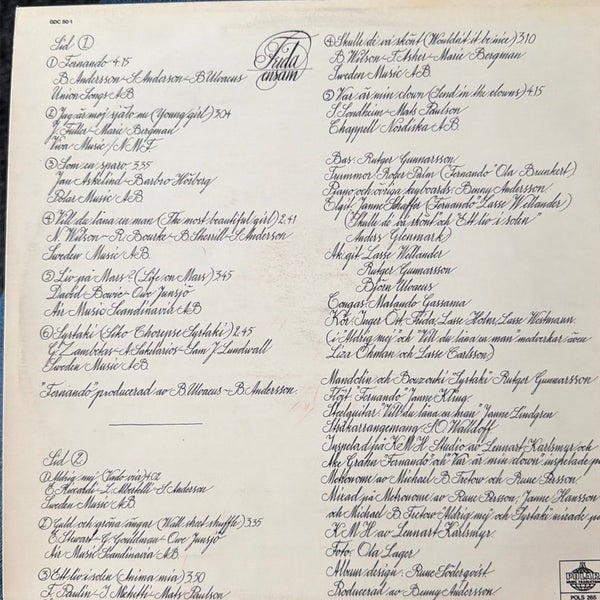 GDC 50:1
Sid ①
Frida
ensam
① Fernando 4.15
B Andersson-S Anderson-B Ulvaeus
Union Songs AB
② Jag är mej själv nu (Young girl) 3.04
J. Fuller-Marie Bergman
Viva Music/NMF
③ Som en sparv 3.35
Jan Askelind-Barbro Hörberg
Polar Music AB
④ Vill du låna en man (The most beautiful girl) 2.41
N. Wilson-R. Bourke-B Sherrill-S. Anderson
Sweden Music AB
⑤ Liv på Mars? (Life on Mars) 3.45
David Bowie-Owe Junsjö
Air Music Scandinavia AB
⑥ Syrtaki (Siko Chorepse Syrtaki) 2.45
G. Zambetas-A Sakelarios-Sam J Lundwall
Sweden Music AB
"Fernando" producerad av B Ulvaeus-B. Andersson.
Sid ②
① Aldrig mej (Vado via) 4.02
E. Riccardi-L. Albertelli-S Anderson
Sweden Music AB
② Guld och gröna ängar (Wall street shuffle) 3.35
E Stewart-G. Gouldman-Owe Junsjö
Air Music Scandinavia AB.
③ Ett liv i solen (Anima mia) 3.50
F. Paulin-I Michetti-Mats Paulson
④ Skulle de va skönt (Wouldn't it be nice) 3.10
B Wilson-T Asher-Marie Bergman
Sweden Music AB.
⑤ Var är min clown (Send in the clowns) 4.15
S Sondheim-Mats Paulson
Chappell Nordiska AB.
Bas: Rutger Gunnarsson
Trummor: Roger Palm ("Fernando" Ola Brunkert)
Piano och övriga keyboards: Benny Andersson
El.git: Janne Schaffer ("Fernando" Lasse Wellander)
("Skulle de va skönt" och "Ett liv i solen"
Anders Glenmark)
Ak.git: Lasse Wellander
Rutger Gunnarsson
Björn Ulvaeus
Congas: Malando Gassama
Kör: Inger Öst, Frida, Lasse Holm, Lasse Westmann.
(i "Aldrig mej" och "Vill du låna en man" medverkar även
Liza Öhman och Lasse Carlsson)
Mandolin och Bouzouki "Syrtaki" Rutger Gunnarsson
Flöjt "Fernando" Janne Kling.
Steelguitar: "Vill du låna en man" Janne Lindgren
Stråkarrangemang S.O. Walldoff
Inspelad på KMH Studio av Lennart Karlsmyr och
Åke Grahn "Fernando" och "Var är min clown" inspelade på
Metronome av Michael B Tretow och Rune Persson.
Mixad på Metronome av Rune Persson, Janne Hansson
och Michael B Tretow "Aldrig mej" och "Syrtaki" mixade på
KMH av Lennart Karlsmyr.
Foto: Ola Lager
Album design: Rune Söderqvist
Producerad av Benny Andersson
POLAR
POLS 265